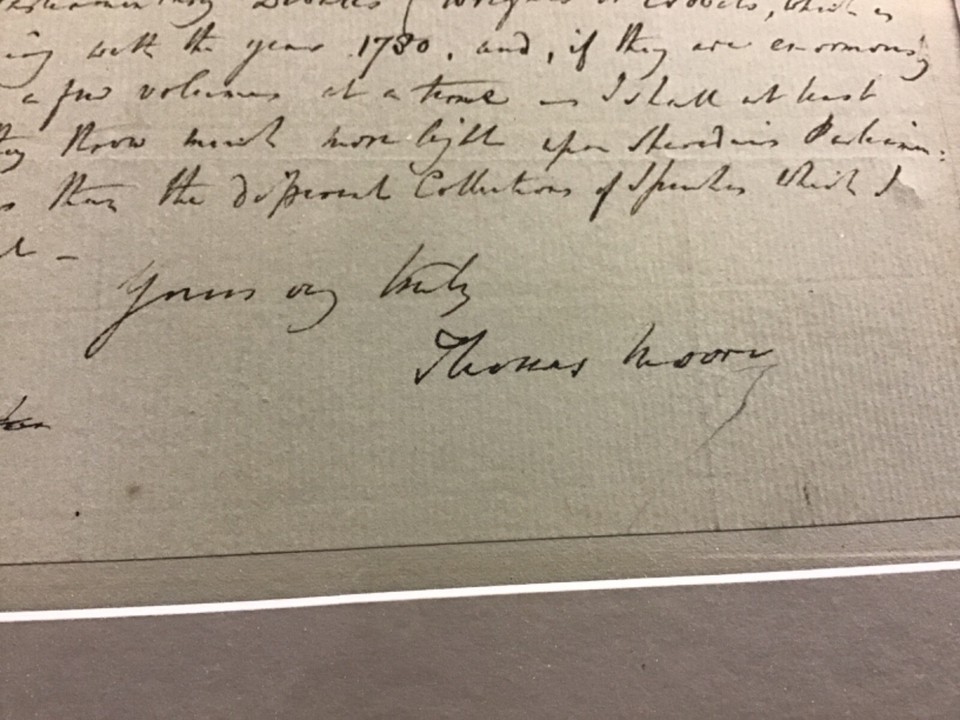 Debates (
ing with the year 1780, and, if they are enormously
a few volumes at a time as I shall at least
they throw much more light upon Sheridan's Parliamen:
than the different Collections of Speeches which I
Yours very truly
Thomas Moore